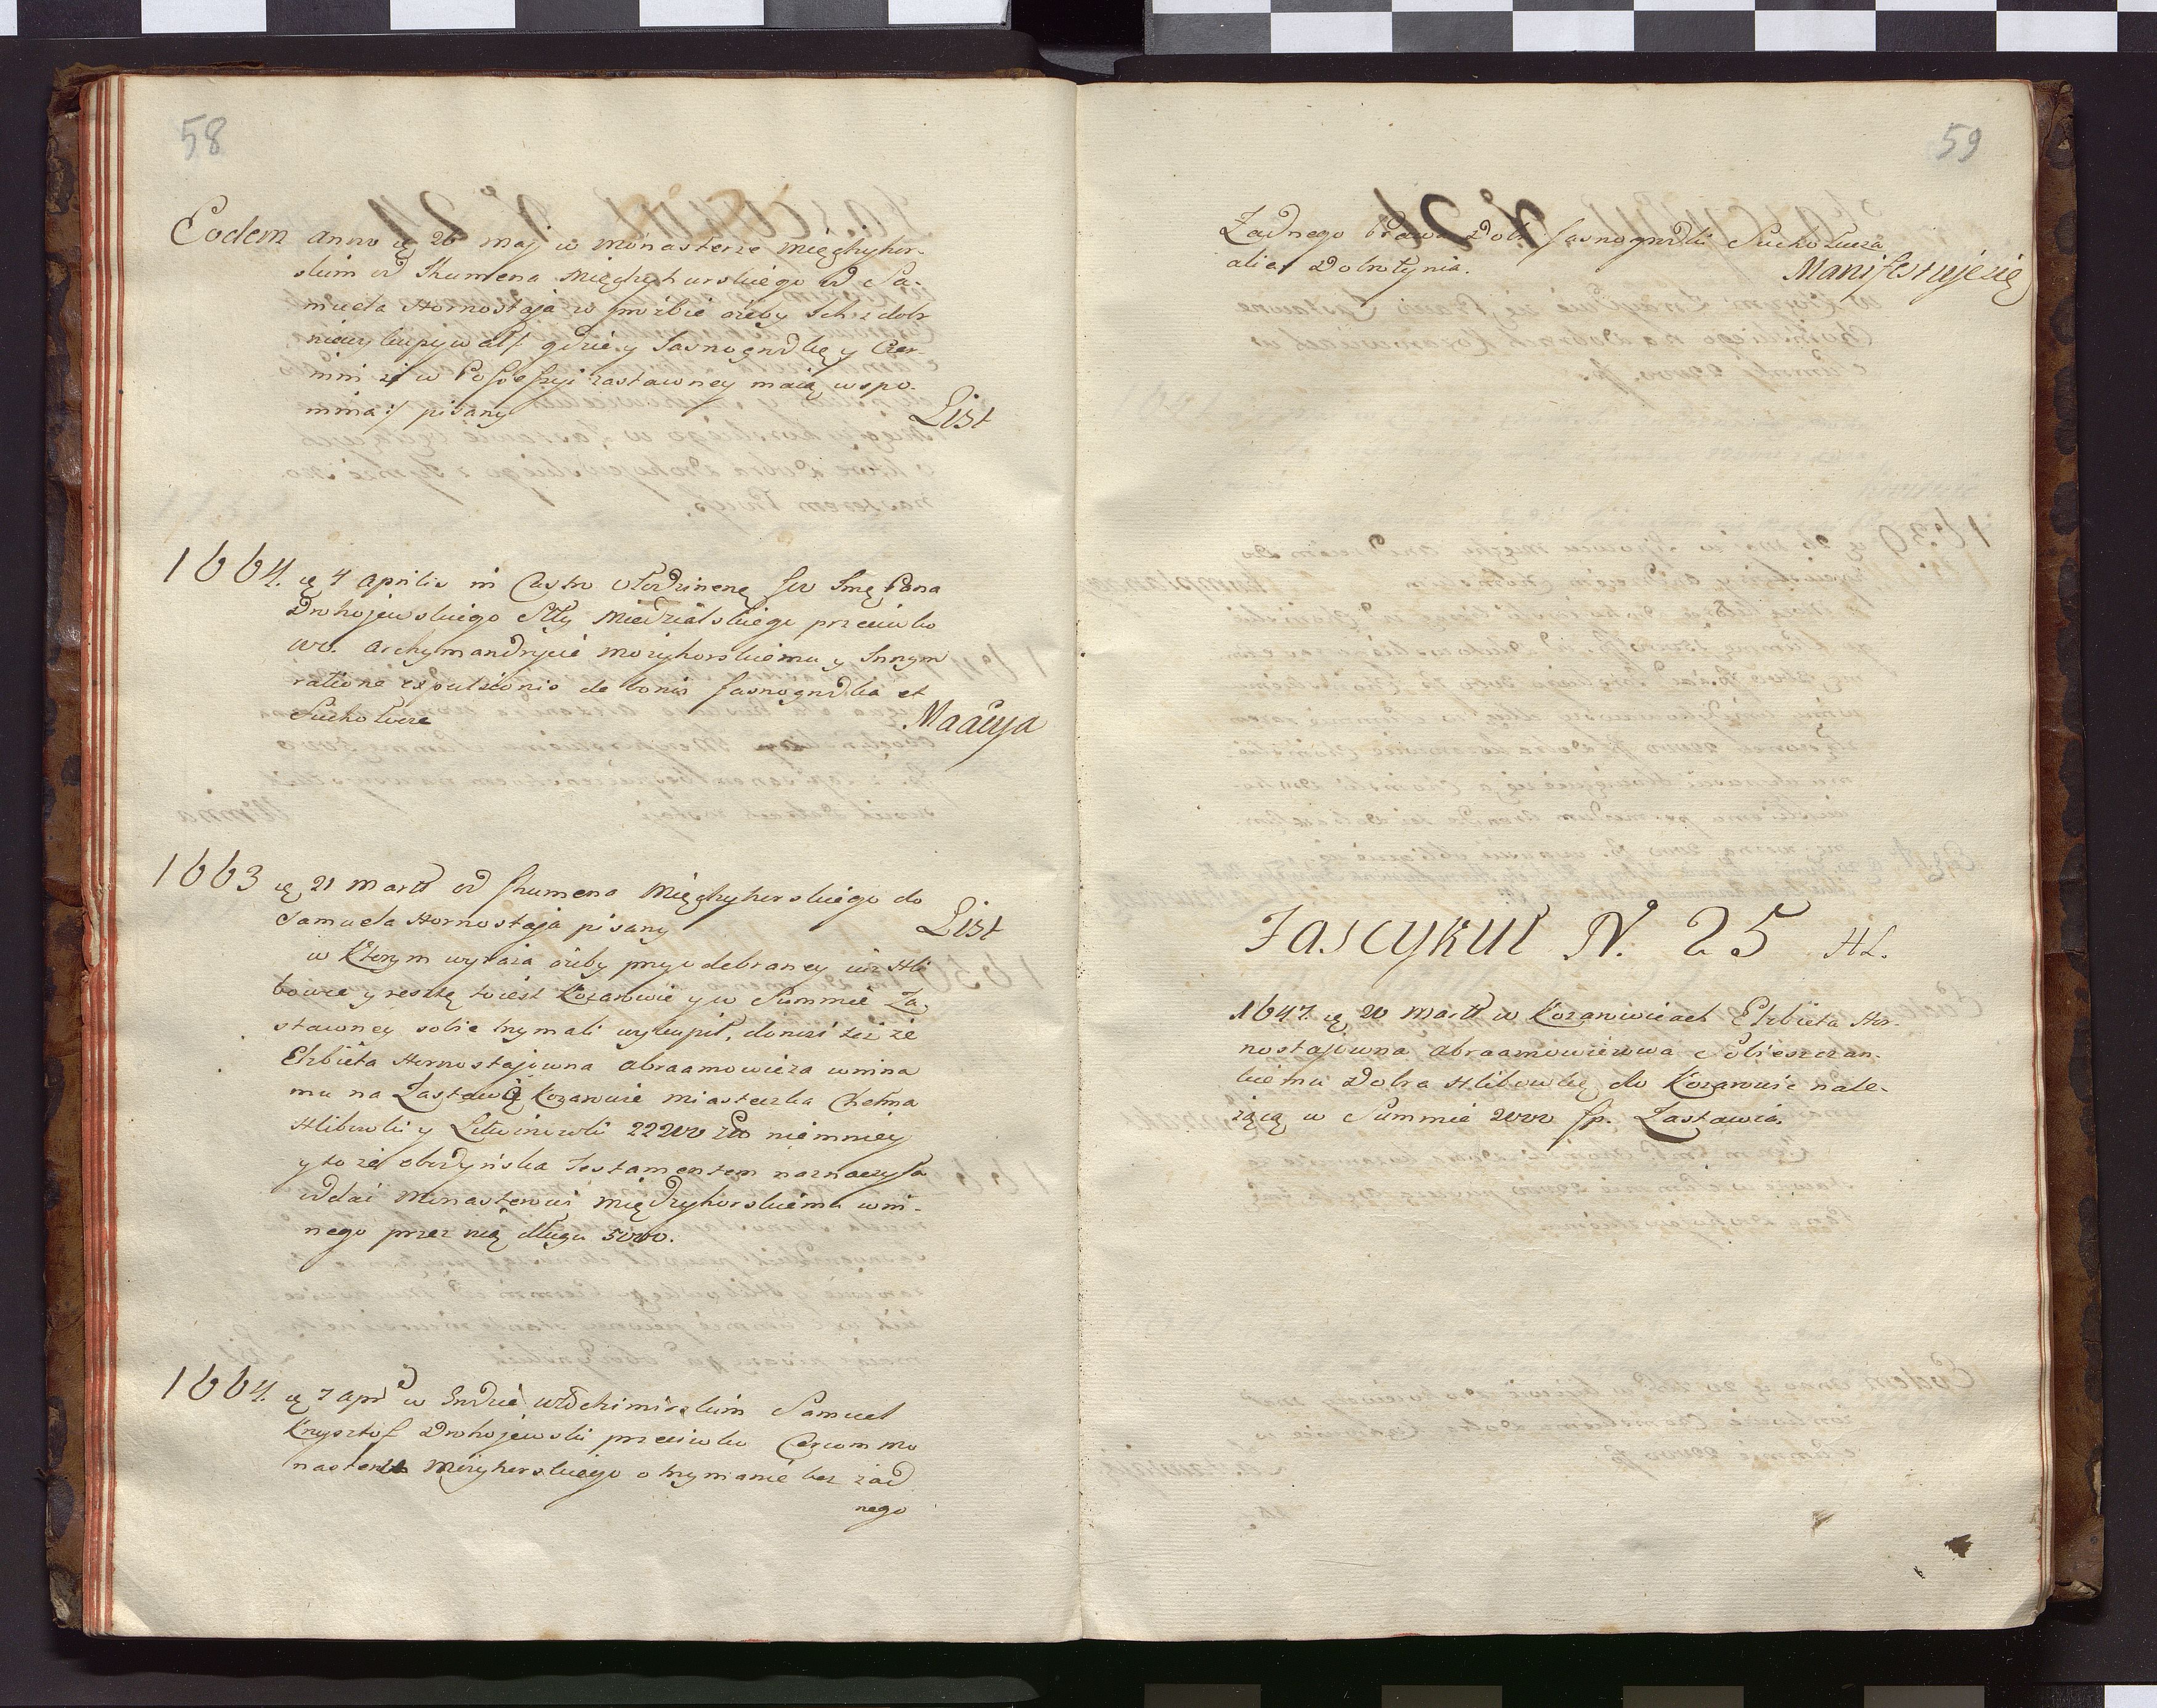 58
Eodem anno ię 26 maj w monasterze Mięghyhor-
skim od Ihumena Mięghyhurskiego do Sa-
muela Hornostaja w proźbie ażeby Ich z dobr
niewykupywał/ gdzie y Jasnogrodkę y Czer-
nin iż w Possessyi zastawney maią wspo-
mina:/ pisany List
1664. ię 4 Aprilis in Castro Włodzimenę per Imę Pana
Drohojewskiego Stty Miedzialskiego przeciwko
Archymandrycie Mozyhorskiemu y Innym
ratione expulsionis de bonis Jasnogrodka et
Sucholucze
1663 ię 21 Martii od Ihumena Mięghyhorskiego do
Samuela Hornostaja pisany List
w Którym wyraża ażeby przy odebraney już Hli-
bowce y resztę to iest Kozarowie y w Summie Za-
stawney sobie trzymali wykupił, donosi też że
Elzbieta Hornostajowna Abraamowicza winna
mu na Zastawę Kozarowic miasteczka Chełma
Hlibowki y Litwinowki 22200 Zło niemniey
y to że oborzyńska Testamentem naznaczyła
oddać Monasterowi Międzyhorskiemu win-
nego przez nią długu 5000.
1664. ię 7 Apr w Grodzie Włodzimirskim Samuel
Krzysztof Drohojewski przeciwko Czercom Mo
nasteru Mezyhorskiego o trzymanie bez żad
nego
59
Żadnego Prawa Dobr Jasnogrodki Sucholucza
alias Dobrotynia. Manifestuje się
Fascykuł N. 25 HL.
1647. ię 20 Martii w Kozarowicach Elzbieta Hor-
nostajowna Abraamowiczowa Sobieszczan-
skiemu Dobra Hlibowkę do Kozarowic nale-
żącą w Summie 2000 fp. Zastawia.